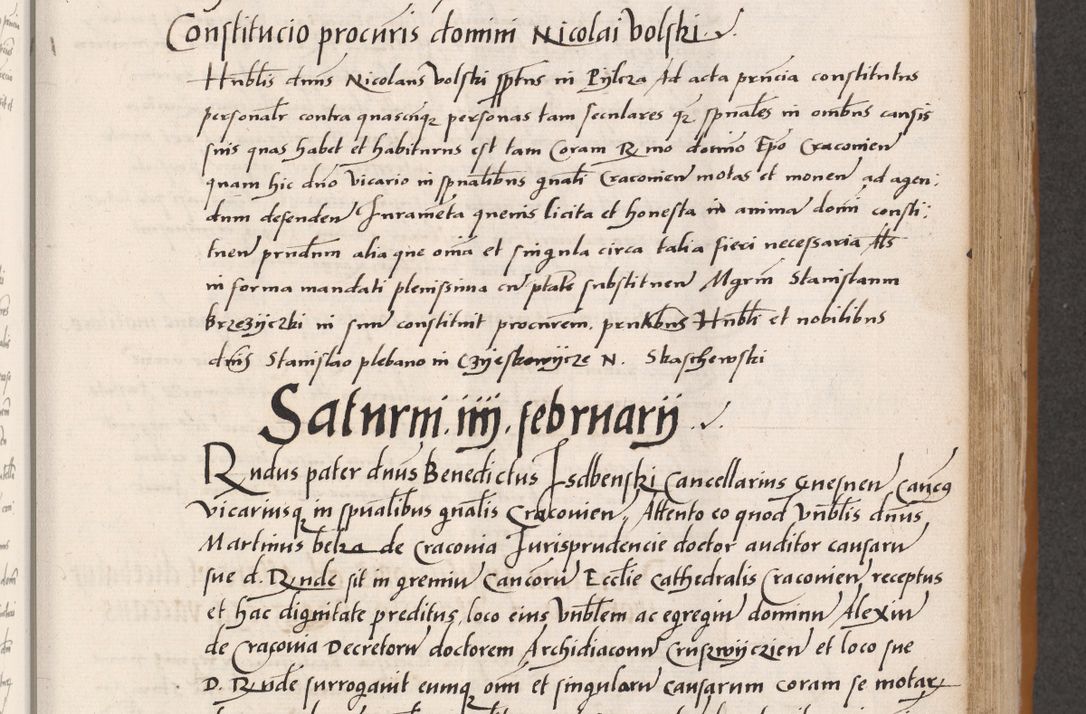 Constitucio procuris domini Nicolai Volski
Hnblis dnus Nicolaus Volski pptus in Pijlcza Ad acta prncia constitutus
personalr contra quascnq personas tam seculares qz spnales in ombus causis
suis quas habet et habiturus est tam Coram Rmo domino Epo Cracovien
quam hic dno Vicario in spnalibus gnali Cracovien motas et monen ad agen:
dum defenden Jurameta quevis licita et honesta in anima domi consti:
tuen prndum alia que oma et singula circa talia fieri necessaria
in forma mandati plenissima cu ptate substituen Mgrm Stanislaum
Brzezijczki in suu constituit procurem. pntibus Hnbli et nobilibus
dnis Stanislao plebano in Czyeskowijcze N. Skaschewski
Saturni. iiij. februarij.
Rndus pater dnus Benedictus Isdbenski Cancellarius Gnesnen Cancq
Vicariusq in spualibus gnalis Cracovien, Attento eo quod Vnblis dnus
Martinus belza de Cracovia Jurisprudencie doctor auditor causaru
sue d. Rnde sit in gremiu Cancoru Ecclie Cathedralis Cracovien receptus
et hac dignitate preditus, loco eius Vnblem ac egregiu dominu Alexiu
de Cracovia Decretoru doctorem Archidiaconu Cruszwijczien et loco sue
D. Rnde surrogavit eumq om et singularu causarum coram se motar